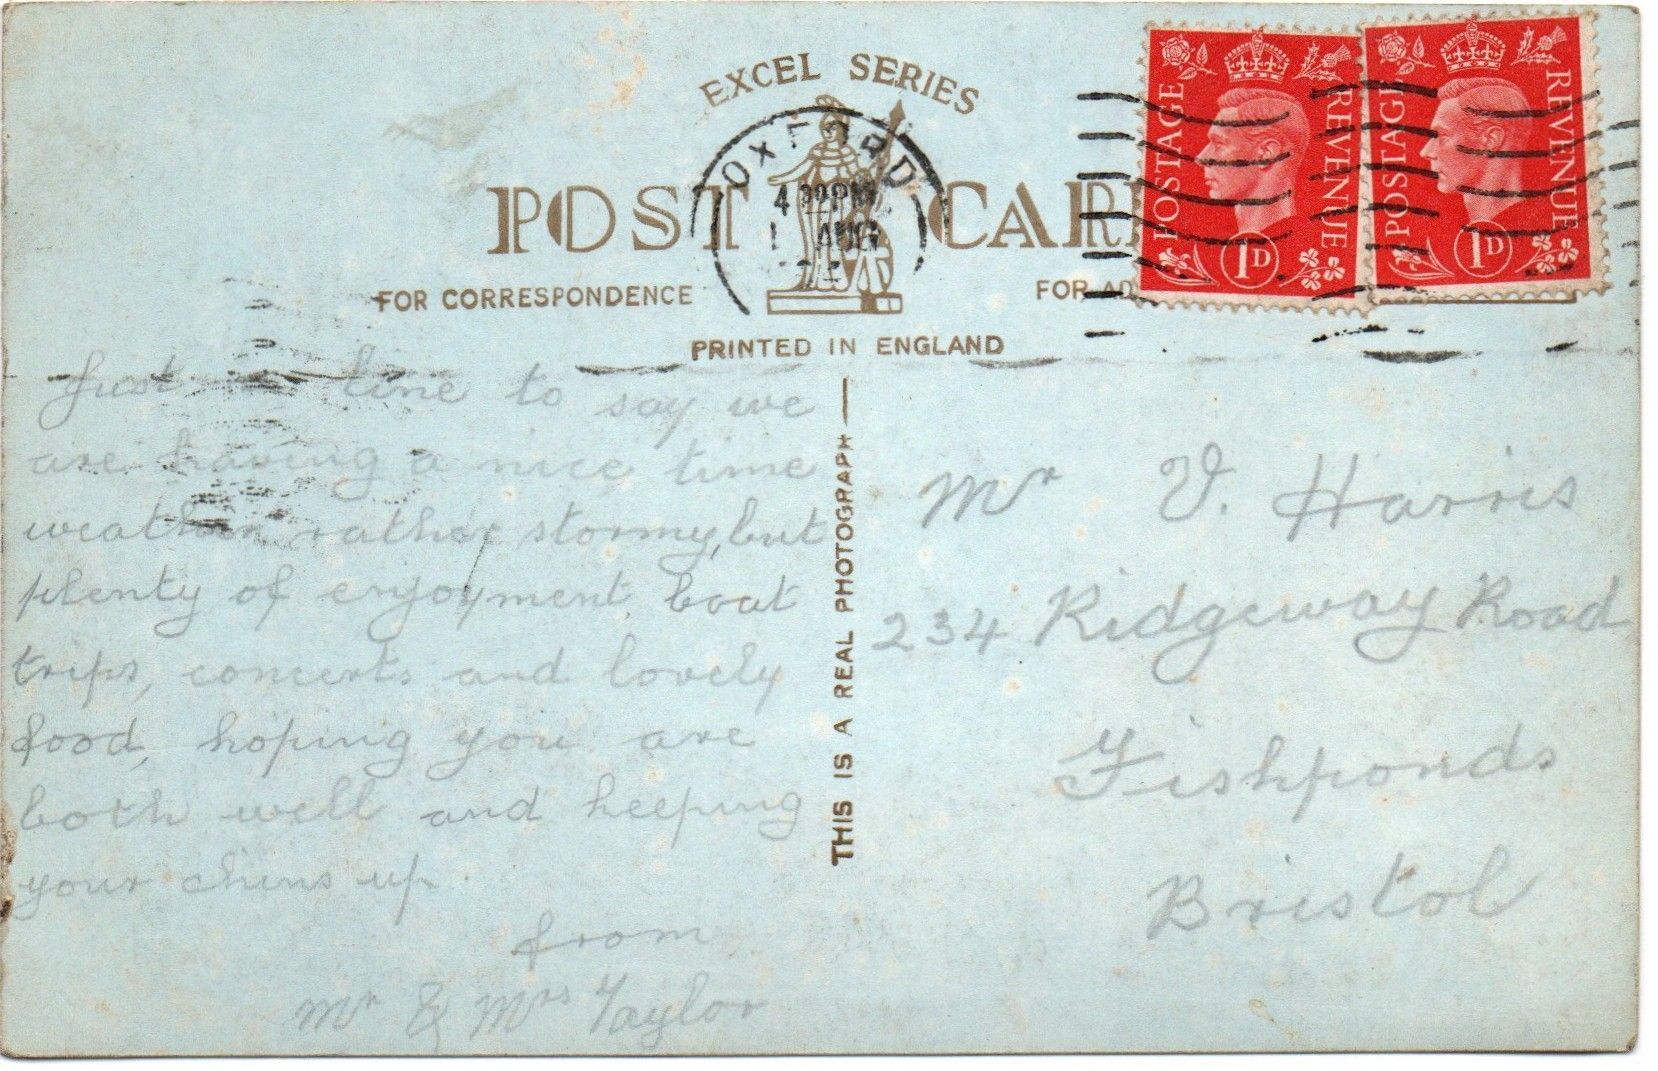 EXCEL SERIES
POST CAR
OXFORD
4 30 PM
1 AUG
FOR CORRESPONDENCE
FOR AD
PRINTED IN ENGLAND
POSTAGE REVENUE
1D
POSTAGE REVENUE
1D
Just time to say we
are having a nice time
weather rather stormy, but
plenty of enjoyment boat
trips, concerts and lovely
food, hoping you are
both well and keeping
your chins up.
from
Mr & Mrs Taylor
THIS IS A REAL PHOTOGRAPH
Mr V. Harris
234 Ridgeway Road
Fishponds
Bristol